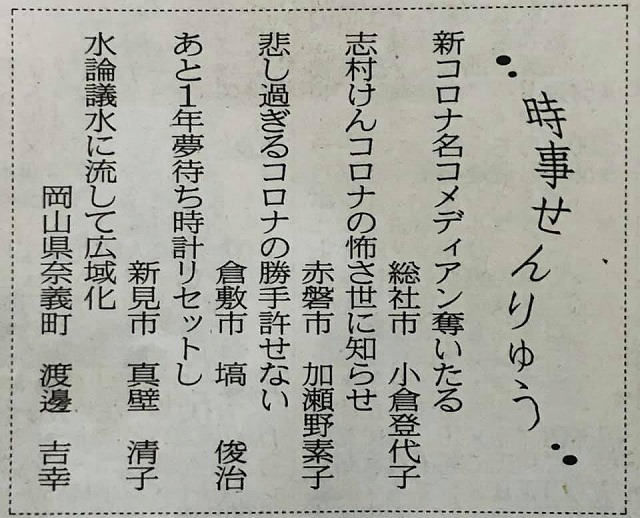 時事せんりゅう
新コロナ名コメディアン奪いたる
総社市 小倉登代子
志村けんコロナの怖さ世に知らせ
赤磐市 加瀬野素子
悲し過ぎるコロナの勝手許せない
倉敷市 塙 俊治
あと1年夢待ち時計リセットし
新見市 真壁 清子
水論議水に流して広域化
岡山県奈義町 渡邊 吉幸